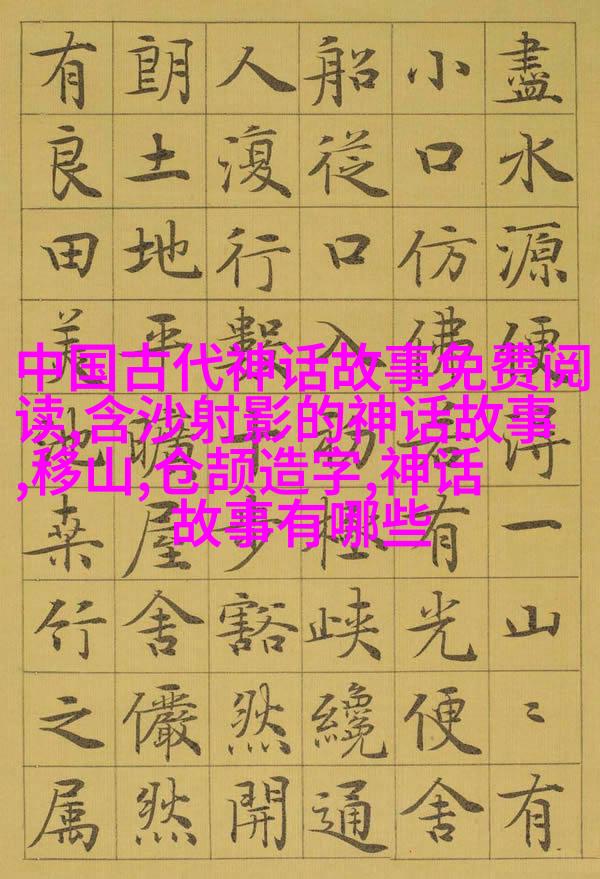 盡水源便得一山〻有
小口仿佛若有光便舍
船從口入初極峽纔通
人復行數十步豁然開
朗土地平曠屋舍儼然
有良田美池桑竹之属
中国古代神话故事免费阅
读,含沙射影的神话故事
,移山,仓颉造字,神话
故事有哪些